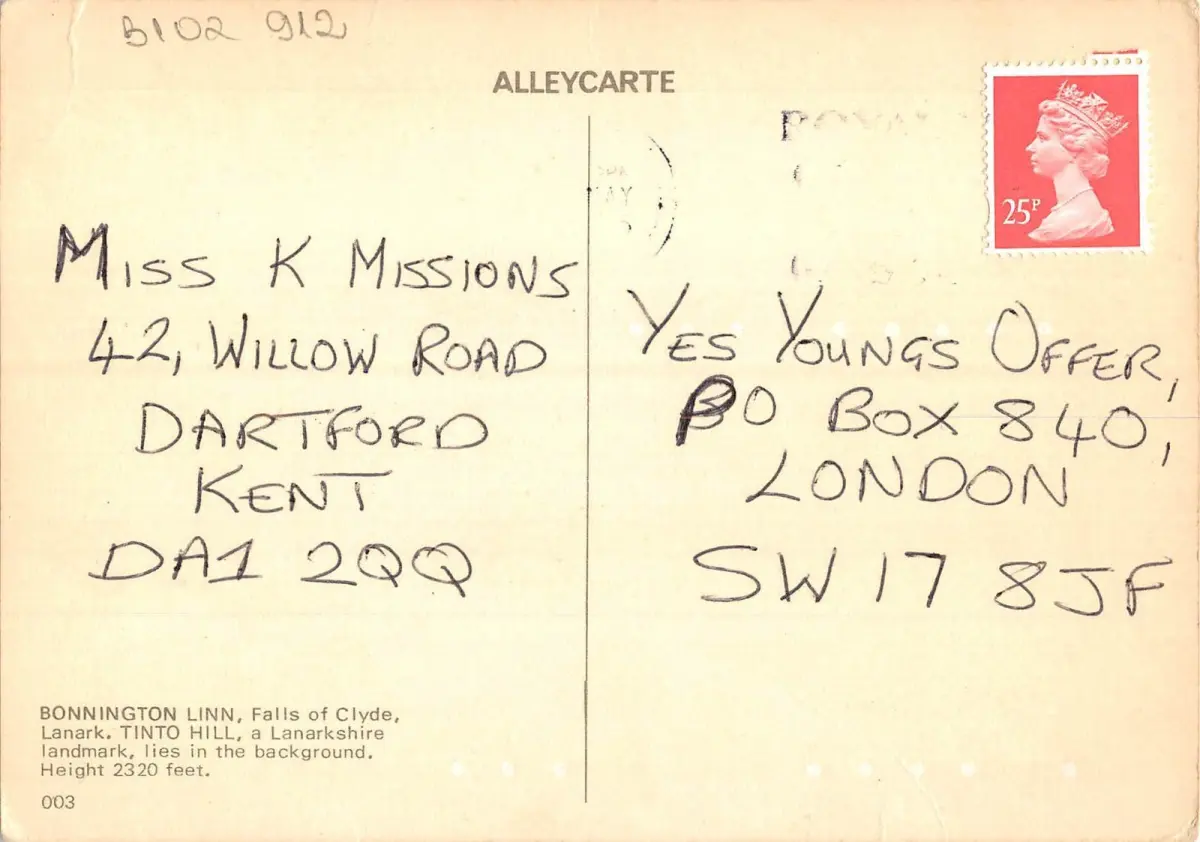 B102 912
ALLEYCARTE
25P
MISS K MISSIONS
42, WILLOW ROAD
DARTFORD
KENT
DA1 2QQ
YES YOUNGS OFFER,
PO BOX 840,
LONDON
SW17 8JF
BONNINGTON LINN, Falls of Clyde,
Lanark. TINTO HILL, a Lanarkshire
landmark, lies in the background.
Height 2320 feet.
003